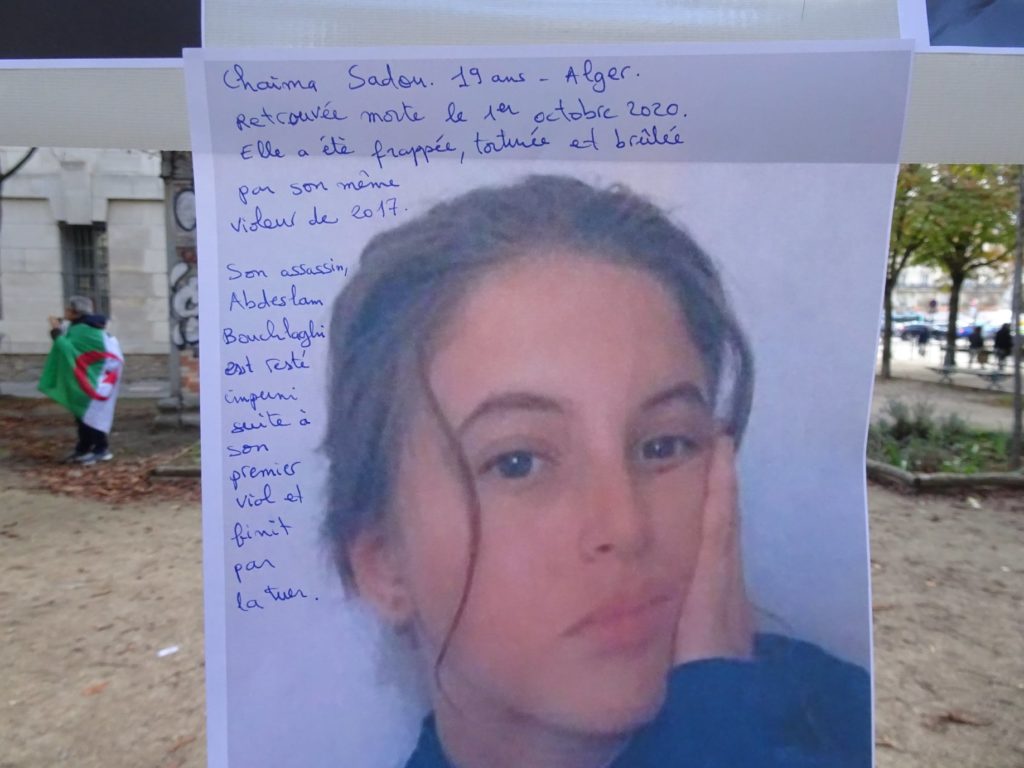 Chaïma Sadou. 19 ans - Alger.
Retrouvée morte le 1er octobre 2020.
Elle a été frappée, torturée et brûlée
par son même
violeur de 2017.
Son assassin,
Abdeslam
Bouchlaghi
est resté
impuni
suite à
son
premier
viol et
finit
par
la tuer.